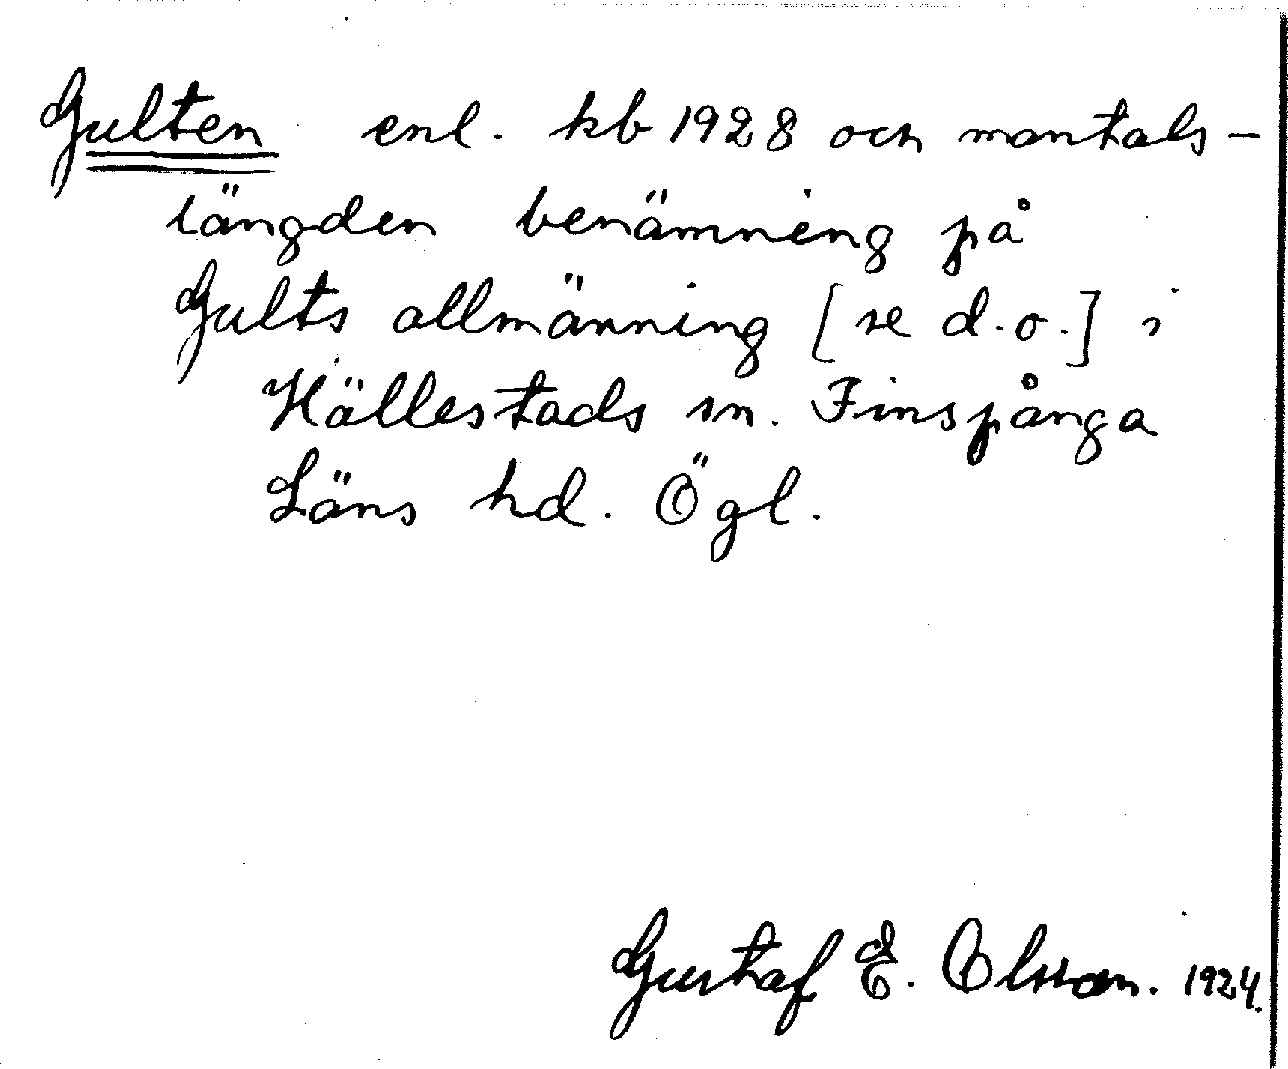 Gulten enl. kb 1928 och mantals-
längden benämning på
Gults allmänning [se d.o.] i
Hällestads sn. Finspånga
Läns hd. Ögl.
Gustaf E. Olsson. 1924.